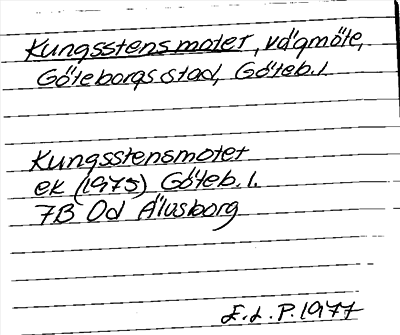 Kungsstensmotet, vägmöte,
Göteborgs stad, Göteb. l.
Kungsstensmotet
ek (1975) Göteb. l.
7B 0d Älvsborg
E. L. P. 1977